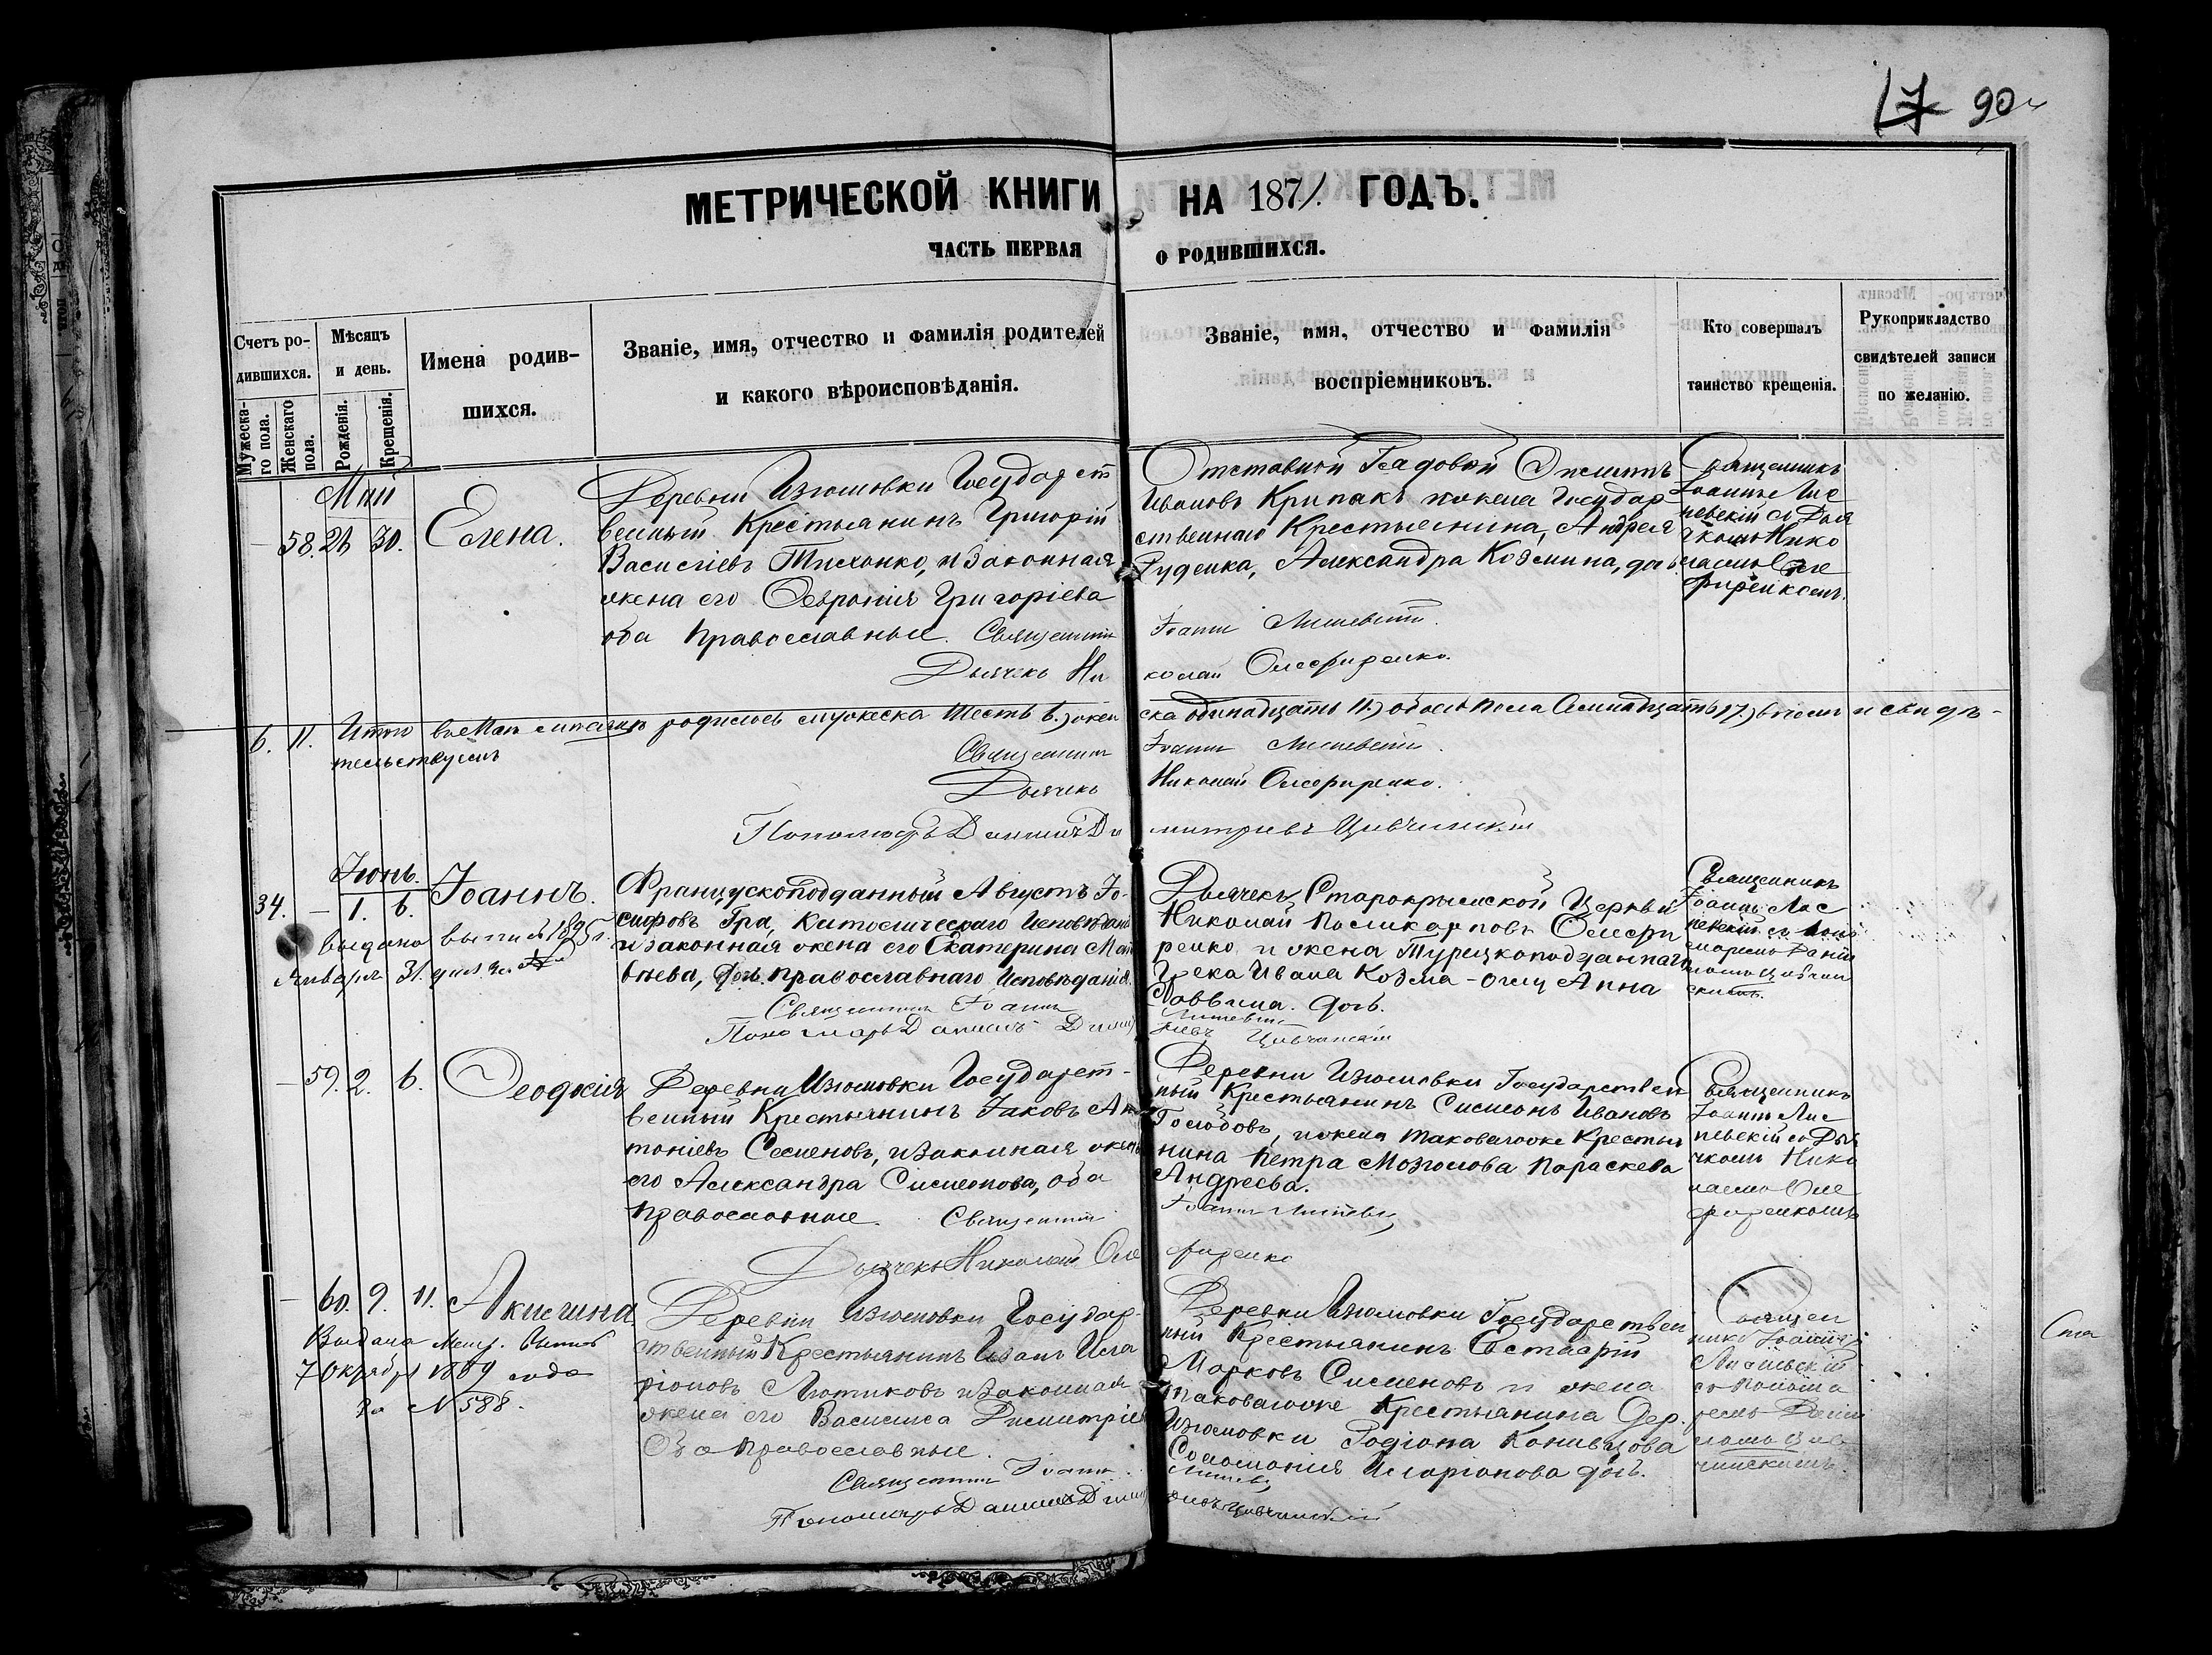 17 90
МЕТРИЧЕСКОЙ КНИГИ НА 1871. ГОДЪ.
ЧАСТЬ ПЕРВАЯ О РОДИВШИХСЯ.
Счетъ родившихся.
Мужескаго пола.
Женскаго пола.
Мѣсяцъ и день.
Рожденія.
Крещенія.
Имена родив-
шихся.
Званіе, имя, отчество и фамилія родителей
и какого вѣроисповѣданія.
Званіе, имя, отчество и фамилія
воспріемниковъ.
Кто совершалъ
таинство крещенія.
Рукоприкладство
свидѣтелей записи
по желанію.
Май
58. 30. Елена.
Деревни Изюмовки Государст
венный Крестьянинъ Григорій
Василіевъ Тихонко, и законная
жена его Февронія Григоріева
оба православные. Священникъ
Дьячекъ Ни
Отставной Рядовой
Ивановъ Крипакъ и жена Государ
ственнаго Крестьянина, Андрея
Руденка, Александра Козмина,
Іоаннъ
колай Олефиренко.
Священникъ
Іоаннъ Лис
невскій съ Дья
чкомъ Нико
лаемъ Оле
фиренкомъ.
6. 11. Итого въ Маѣ мѣсяцѣ родилось мужеска шесть 6.) жен
ска одинадцать 11.) обоего пола семнадцать 17.) въ чемъ и свидѣ-
тельствуемъ
Священникъ Іоаннъ
Дьячекъ Николай Олефиренко.
Пономарь Даніилъ Ди митріевъ
Іюнь.
34. – 1. 6. Іоаннъ.
выдана выпись 1895 г.
Января 31. дня
Французскоподданный Августъ Іо-
сифовъ Гра, Католическаго Исповѣданія
и законная жена его Екатерина Мат
вѣева, православнаго Исповѣданія.
Священникъ Іоаннъ
Пономарь Даніилъ
Дьячекъ Старокрымской Церкви
Николай Поликарповъ Олефи
ренко и жена Турецкоподданнаго
Грека Ивана Козма-оглу Анна
Саввина.
Священникъ
Іоаннъ Лис
невскій съ поно
маремъ Даніи
ломъ
– 59. 2. 6. Феодосія
Деревни Изюмовки Государст-
венный Крестьянинъ Іаковъ Ан
тоніевъ Семеновъ, и законная жена
его Александра Симеонова, оба
православные. Священникъ
Дьячекъ Николай Оле
Деревни Изюмовки Государствен
ный Крестьянинъ Симеонъ Ивановъ
и жена таковагоже Крестья
нина Петра Мозголова Параскева
Андреева.
Іоаннъ
фиренко
Священникъ
Іоаннъ Лис
невскій съ Дья
чкомъ Нико
лаемъ Оле
фиренкомъ
– 60. 9. 11. Акилина.
Выдана Метр.
7 Октября 1889 года
за N 588.
Деревни Изюмовки Государ-
ственный Крестьянинъ Иванъ Ила
ріоновъ Лютиковъ и законная
жена его Василиса Димитріева
Оба православные.
Священникъ Іоаннъ
Пономарь Даніилъ
Деревни Изюмовки Государствен
ный Крестьянинъ Евстафій
Марковъ Сименовъ и жена
таковагоже Крестьянина дер.
Изюмовки Родіона Конивцова
Соломонія Иларіонова
Священ
никъ Іоаннъ
съ Понома
ремъ Даніи
ломъ